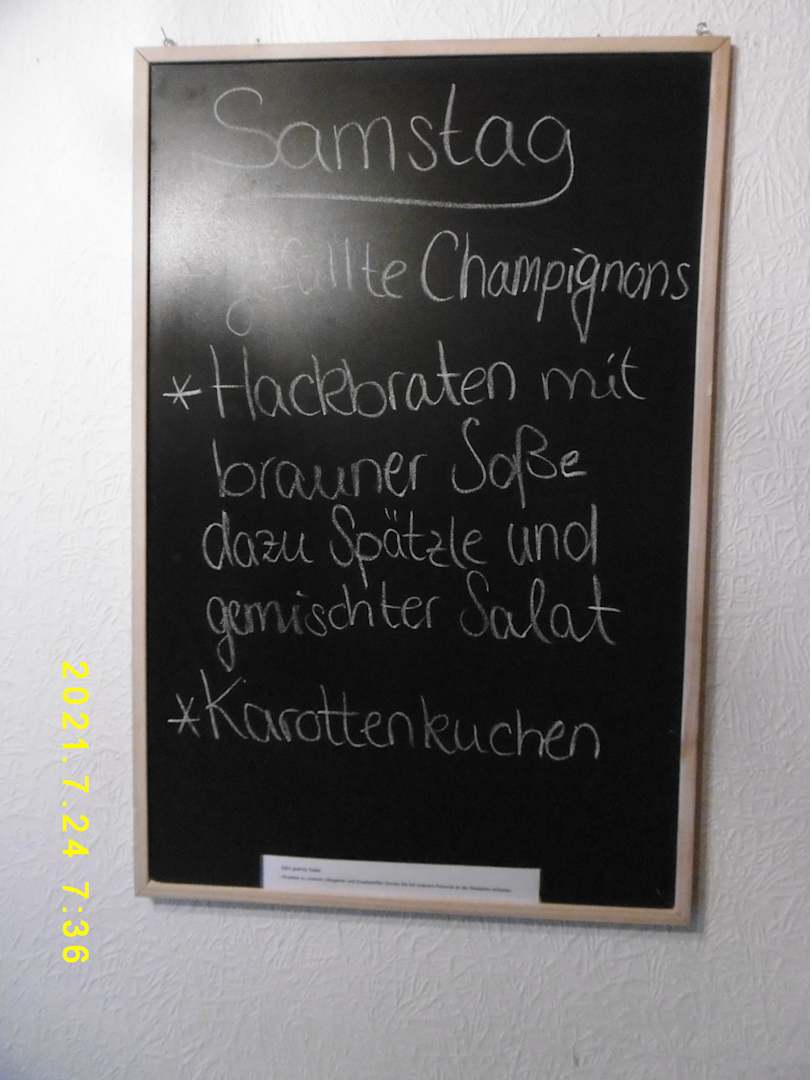 Samstag
gefüllte Champignons
* Hackbraten mit
brauner Soße
dazu Spätzle und
gemischter Salat
* Karottenkuchen
2021.7.24 7:36